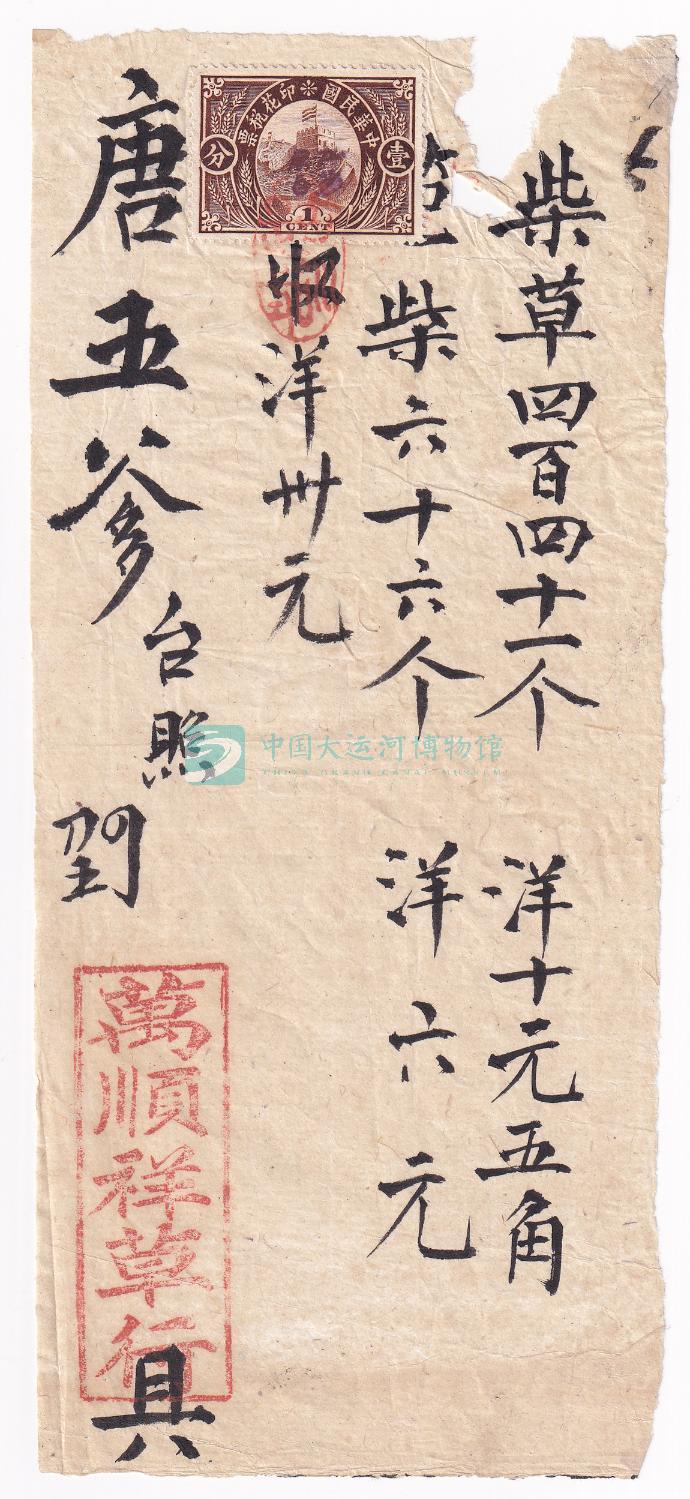 柴草四百四十一个 洋十元五角
柴六十六个 洋六元
收洋卅元
唐五爹
台照
萬順祥草行
具
中華民國印花税票
壹
分
1
CENT
中国大运河博物馆
CHINA GRAND CANAL MUSEUM